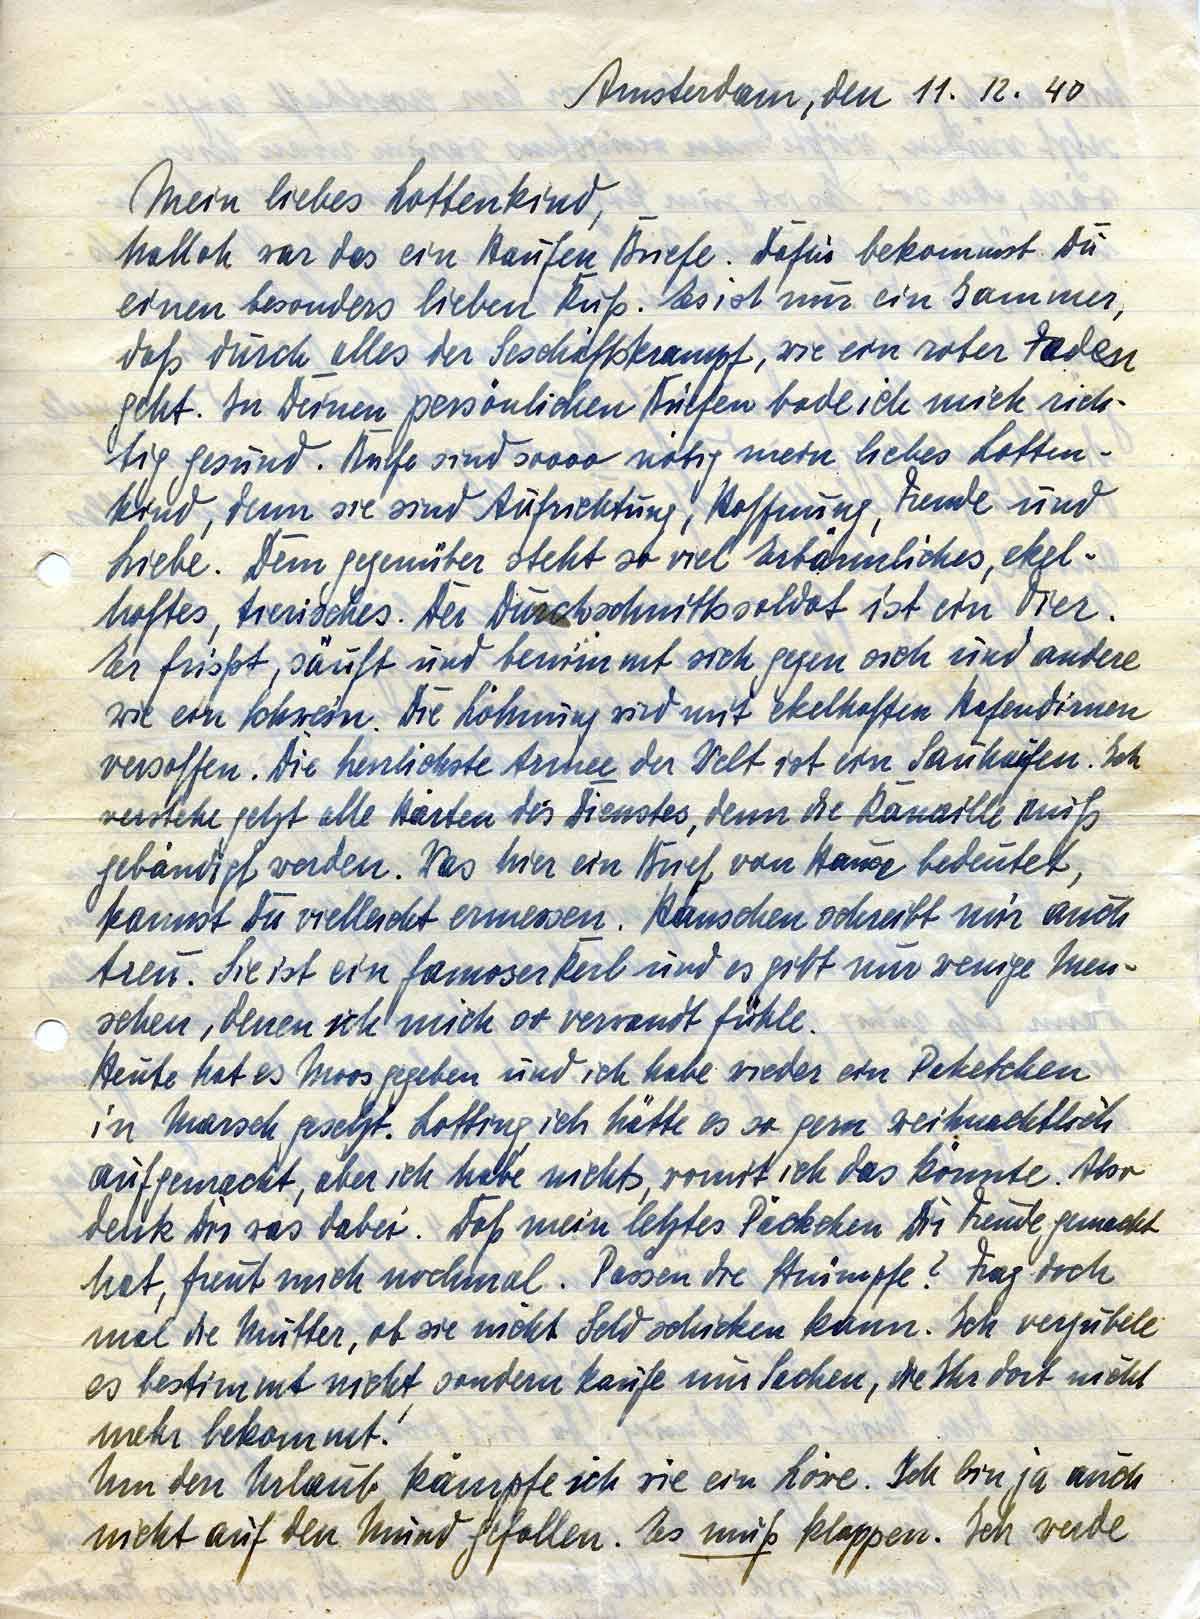 Amsterdam, den 11. 12. 40
Mein liebes Lottenkind,
halloh war das ein Haufen Briefe. Dafür bekommst Du
einen besonders lieben Kuß. Es ist nur ein Jammer,
daß durch alles der Geschäftskrampf, wie ein roter Faden
geht. In Deinen persönlichen Briefen bade ich mich rich-
tig gesund. Briefe sind soooo nötig mein liebes Lotten-
kind, denn sie sind Aufrichtung, Hoffnung, Freude und
Liebe. Dem gegenüber steht so viel Erbärmliches, ekel-
haftes, tierisches. Der Durchschnittssoldat ist ein Tier.
Er frißt, säuft und benimmt sich gegen sich und andere
wie ein Schwein. Die Löhnung wird mit ekelhaften Hafendirnen
versoffen. Die herrlichste Armee der Welt ist ein Sauhaufen. Ich
verstehe jetzt alle Härten des Dienstes, denn die Kanaille muß
gebändigt werden. Was hier ein Brief von Hause bedeutet,
kannst Du vielleicht ermessen. Hänschen schreibt mir auch
treu. Sie ist ein famoser Kerl und es gibt nur wenige Men-
schen, denen ich mich so verwandt fühle.
Heute hat es Moos gegeben und ich habe wieder ein Paketchen
in Marsch gesetzt. Lotting ich hätte es so gern weihnachtlich
aufgemacht, aber ich habe nichts, womit ich das könnte. Also
denk Dir was dabei. Daß mein letztes Päckchen Dir Freude gemacht
hat, freut mich nochmal. Passen die Strümpfe? Frag doch
mal die Mutter, ob sie nicht Geld schicken kann. Ich verjubele
es bestimmt nicht, sondern kaufe nur Sachen, die Ihr dort nicht
mehr bekommt!
Um den Urlaub kämpfe ich wie ein Löwe. Ich bin ja auch
nicht auf den Mund gefallen. Es muß klappen. Ich werde